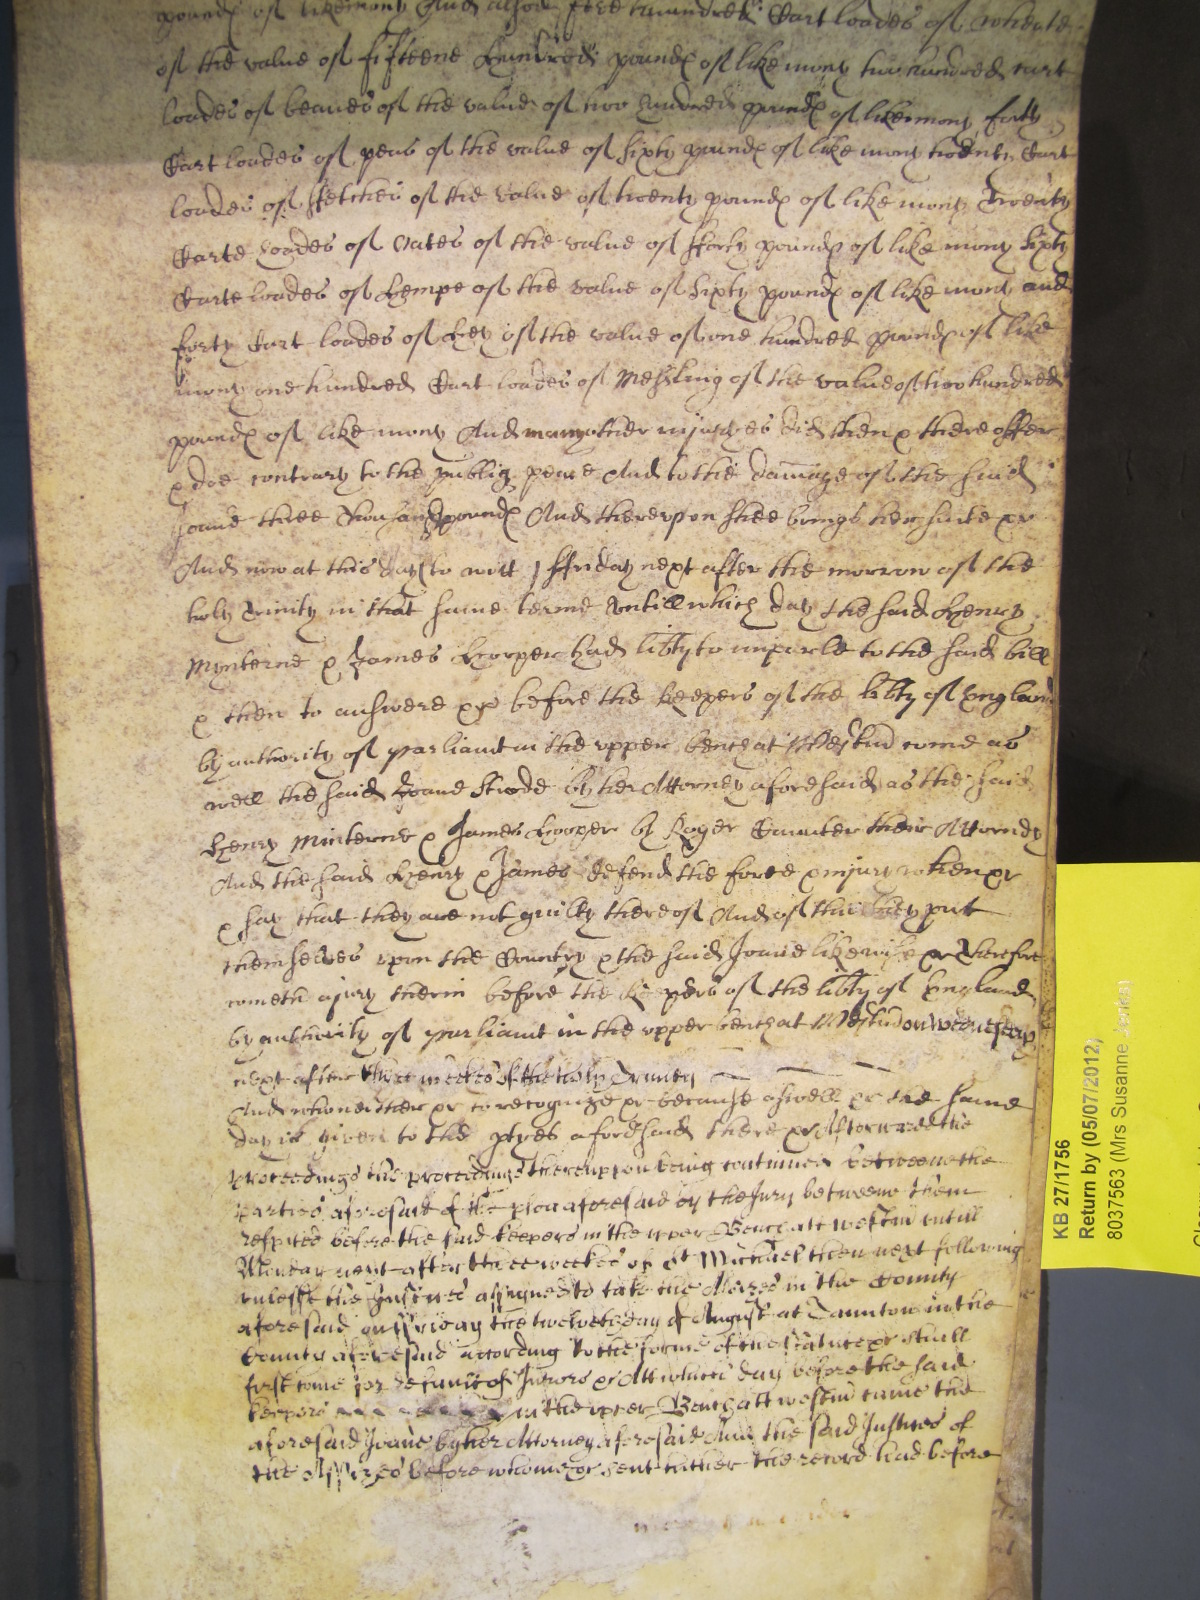 pound of like mony And also five hundred Cart loades of wheate
of the value of fifteene hundred pound of like mony two hundred cart
loades of beanes of the value of two hundred pound of like mony forty
Cart loades of peas of the value of sixty pound of like mony twenty Cart
loades of ffetches of the value of twenty pound of like mony Twenty
Carte loades of Oates of the value of fforty pound of like mony sixty
Carte loades of hempe of the value of sixty pound of like mony and
forty Cart loades of hey of the value of one hundred pound of like
mony one hundred Cart loades of Meslling of the value of two hundred
pound of like mony And many other injuryes did then & there offer
& doe contrary to the publiq peace And to the damage of the said
Joane three thousand pound And thereupon shee brings her suite &c
And now at this day to witt ffriday next after the morrow of the
holy Trinity in that same terme Untill which day the said Henry
Mynterne & James Hooper had libty to imparle to the said bill
& then to answere &c before the Keepers of the libty of England
by authority of parliamt in the upper bench at Westmr come as
well the said Joane Strode by her Attorney aforesaid as the said
Henry Minterne & James Hooper by Roger Caunter their Attorney
And the said Henry & James defend the force & injury when &c
& say that they are not guilty thereof And of this they put
themselves upon the Country & the said Joane likewise &c Therefore
cometh a jury therin before the Keepers of the libty of England
by authority of parliamt in the upper bench at Westmr on wednesday
next after three weekes of the holy Trinity
And who neither &c to recognize &c because aswell &c the same
day is given to the ptyes aforesaid there &c Afterwards the
proceedings the proceedings thereupon being continued betweene the
parties aforesaid of the plea aforesaid by the Jury betweene them
respited before the said keepers in the upper Bench att westmr untill
Munday next after three weekes of St Michael then next following
unlesse the Justices assigned to take the Assizes in the County
aforesaid on ffriday the twelveth day of August at Taunton in the
County aforesaid according to the forme of the statute &c shall
first come for default of Jurors &c Att which day before the said
keepers in the upper Bench att westmr came the
aforesaid Joane by her Attorney aforesaid And the said Justices of
the Assizes before whome &c sent hither the record had before
KB 27/1756
Return by (05/07/2012)
8037563 (Mrs Susanne